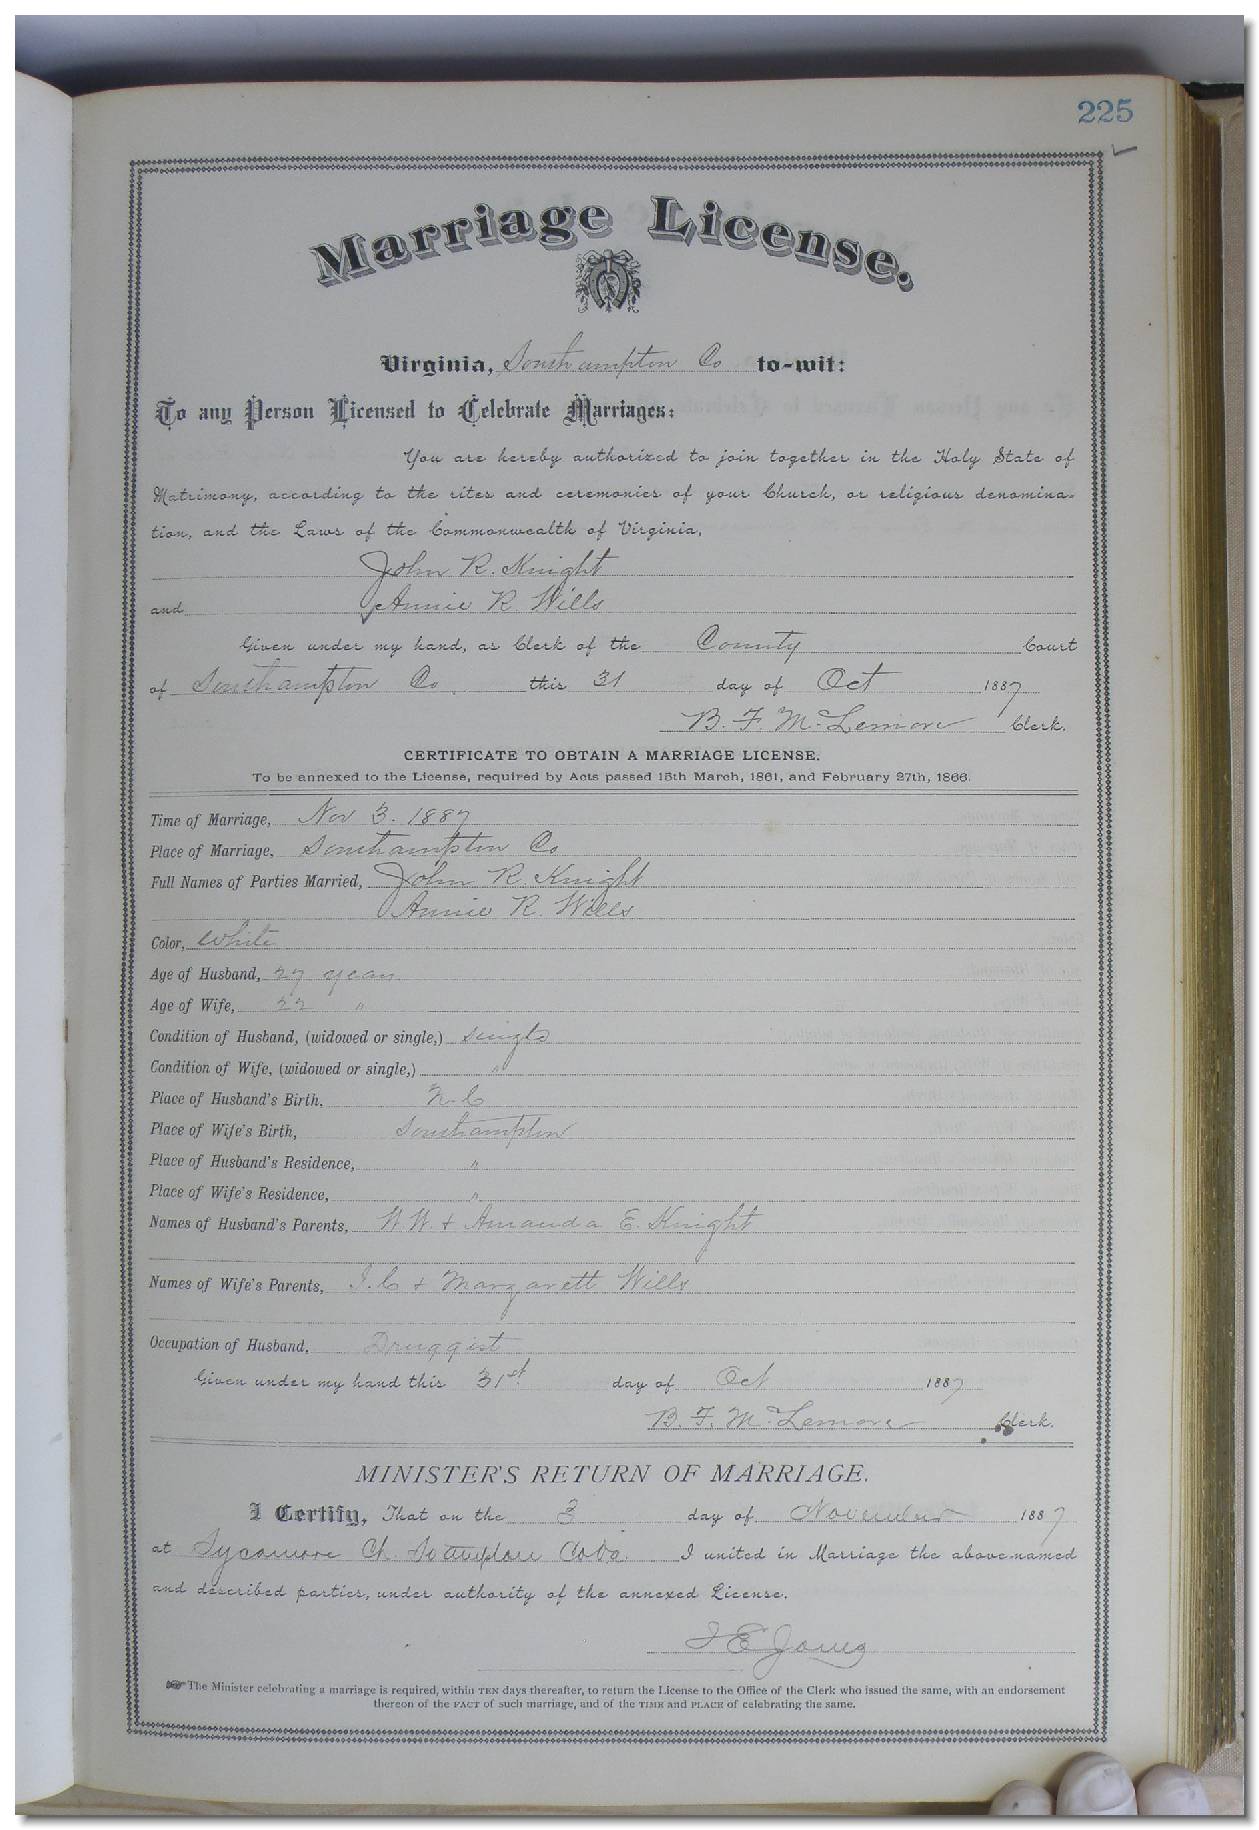 225
Marriage License.
Virginia, Southampton Co to-wit:
To any Person Licensed to Celebrate Marriages:
You are hereby authorized to join together in the Holy State of
Matrimony, according to the rites and ceremonies of your Church, or religious denomina-
tion, and the Laws of the Commonwealth of Virginia,
John R. Knight
and Annie R Wills
Given under my hand, as Clerk of the County Court
of Southampton Co. this 31 day of Oct 1887
B. F. McLemore Clerk.
CERTIFICATE TO OBTAIN A MARRIAGE LICENSE.
To be annexed to the License, required by Acts passed 15th March, 1861, and February 27th, 1866.
Time of Marriage, Nov 3. 1887
Place of Marriage, Southampton Co
Full Names of Parties Married, John R. Knight
Annie R. Wills
Color, White
Age of Husband, 27 years
Age of Wife, 22 "
Condition of Husband, (widowed or single,) single
Condition of Wife, (widowed or single,) "
Place of Husband's Birth, N.C
Place of Wife's Birth, Southampton
Place of Husband's Residence, "
Place of Wife's Residence, "
Names of Husband's Parents, W W. & Amanda E. Knight
Names of Wife's Parents, J. C & Margarett Wills
Occupation of Husband, Druggist
Given under my hand this 31st day of Oct 1887
B. F. McLemore Clerk.
MINISTER'S RETURN OF MARRIAGE.
I Certify, That on the 3 day of November 1887
at Sycamore Ch. I united in Marriage the above-named
and described parties, under authority of the annexed License.
J E Jones
The Minister celebrating a marriage is required, within TEN days thereafter, to return the License to the Office of the Clerk who issued the same, with an endorsement
thereon of the FACT of such marriage, and of the TIME and PLACE of celebrating the same.